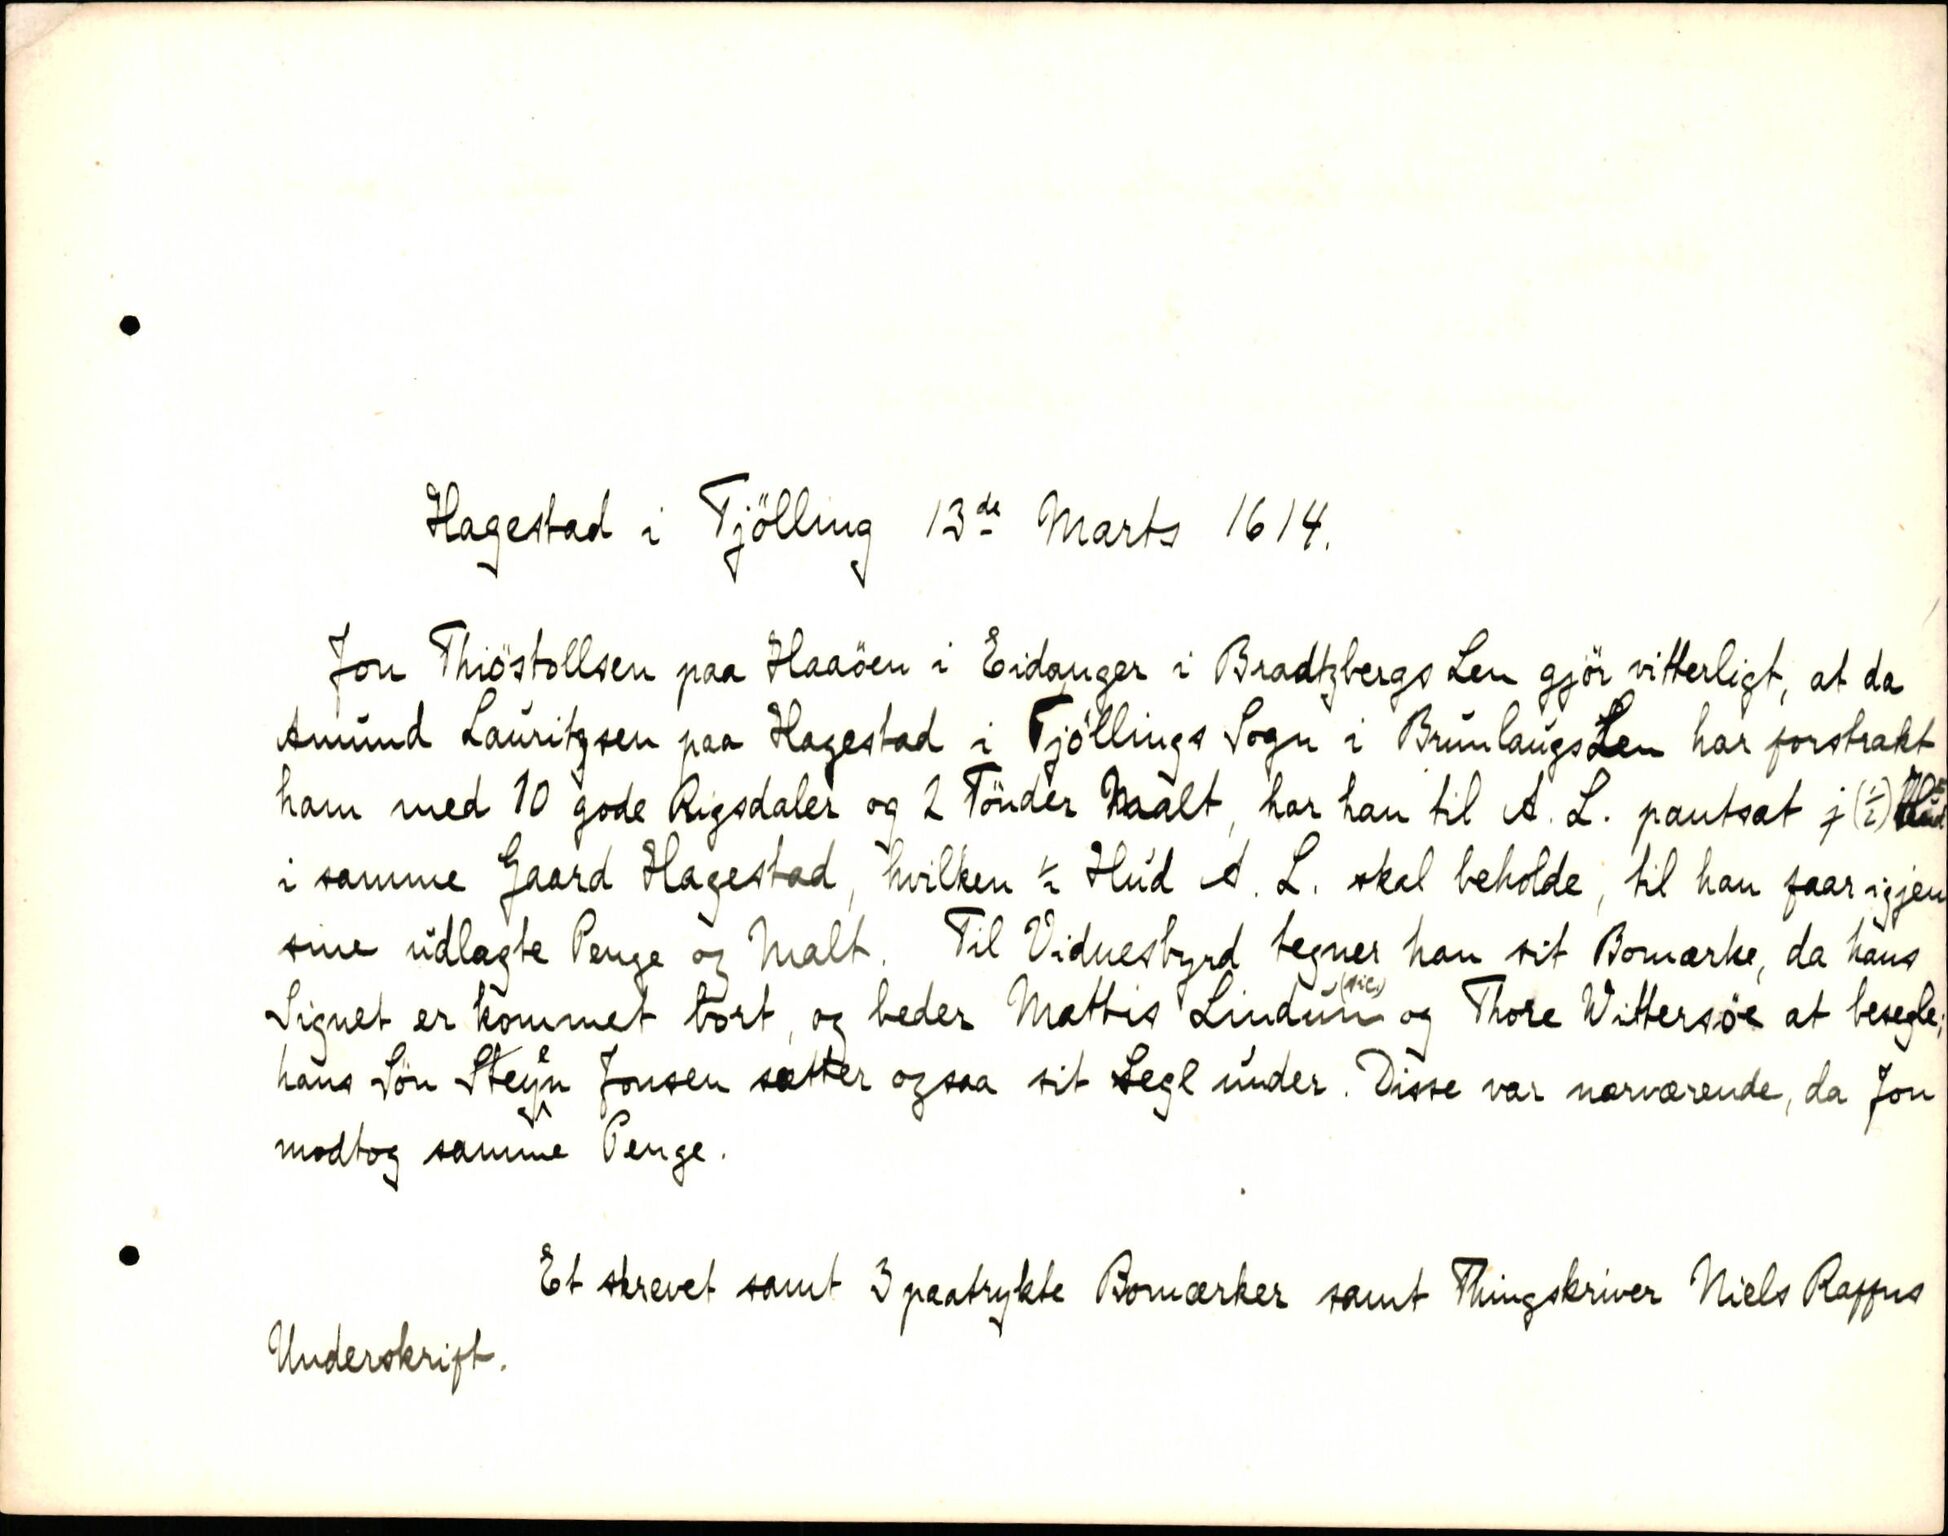 Hagestad i Tjölling 13de Marts 1614.
Jon Thiöstollsen paa Haaöen i Eidanger i Bradtzbergs Len gjör vitterligt, at da
Amund Lauritzsen paa Hagestad i Tjöllings Sogn i Brunlaugs Len har forstrakt
ham med 10 gode Rigsdaler og 2 Tönder Malt, har han til A. L. pantsat j (½) Hud
i samme Gaard Hagestad, hvilken ½ Hud A. L. skal beholde, til han faar igjen
sine udlagte Penge og Malt. Til Vidnesbyrd tegner han sit Bomærke, da hans
Signet er kommet bort, og beder Mattis Lindun (sic) og Thore Wittersöe at besegle;
hans Sön Steyen Jonsen sætter ogsaa sit Segl under. Disse var nærværende, da Jon
modtog samme Penge.
Et skrevet samt 3 paatrykte Bomærker samt Thingskriver Niels Raffns
Underskrift.